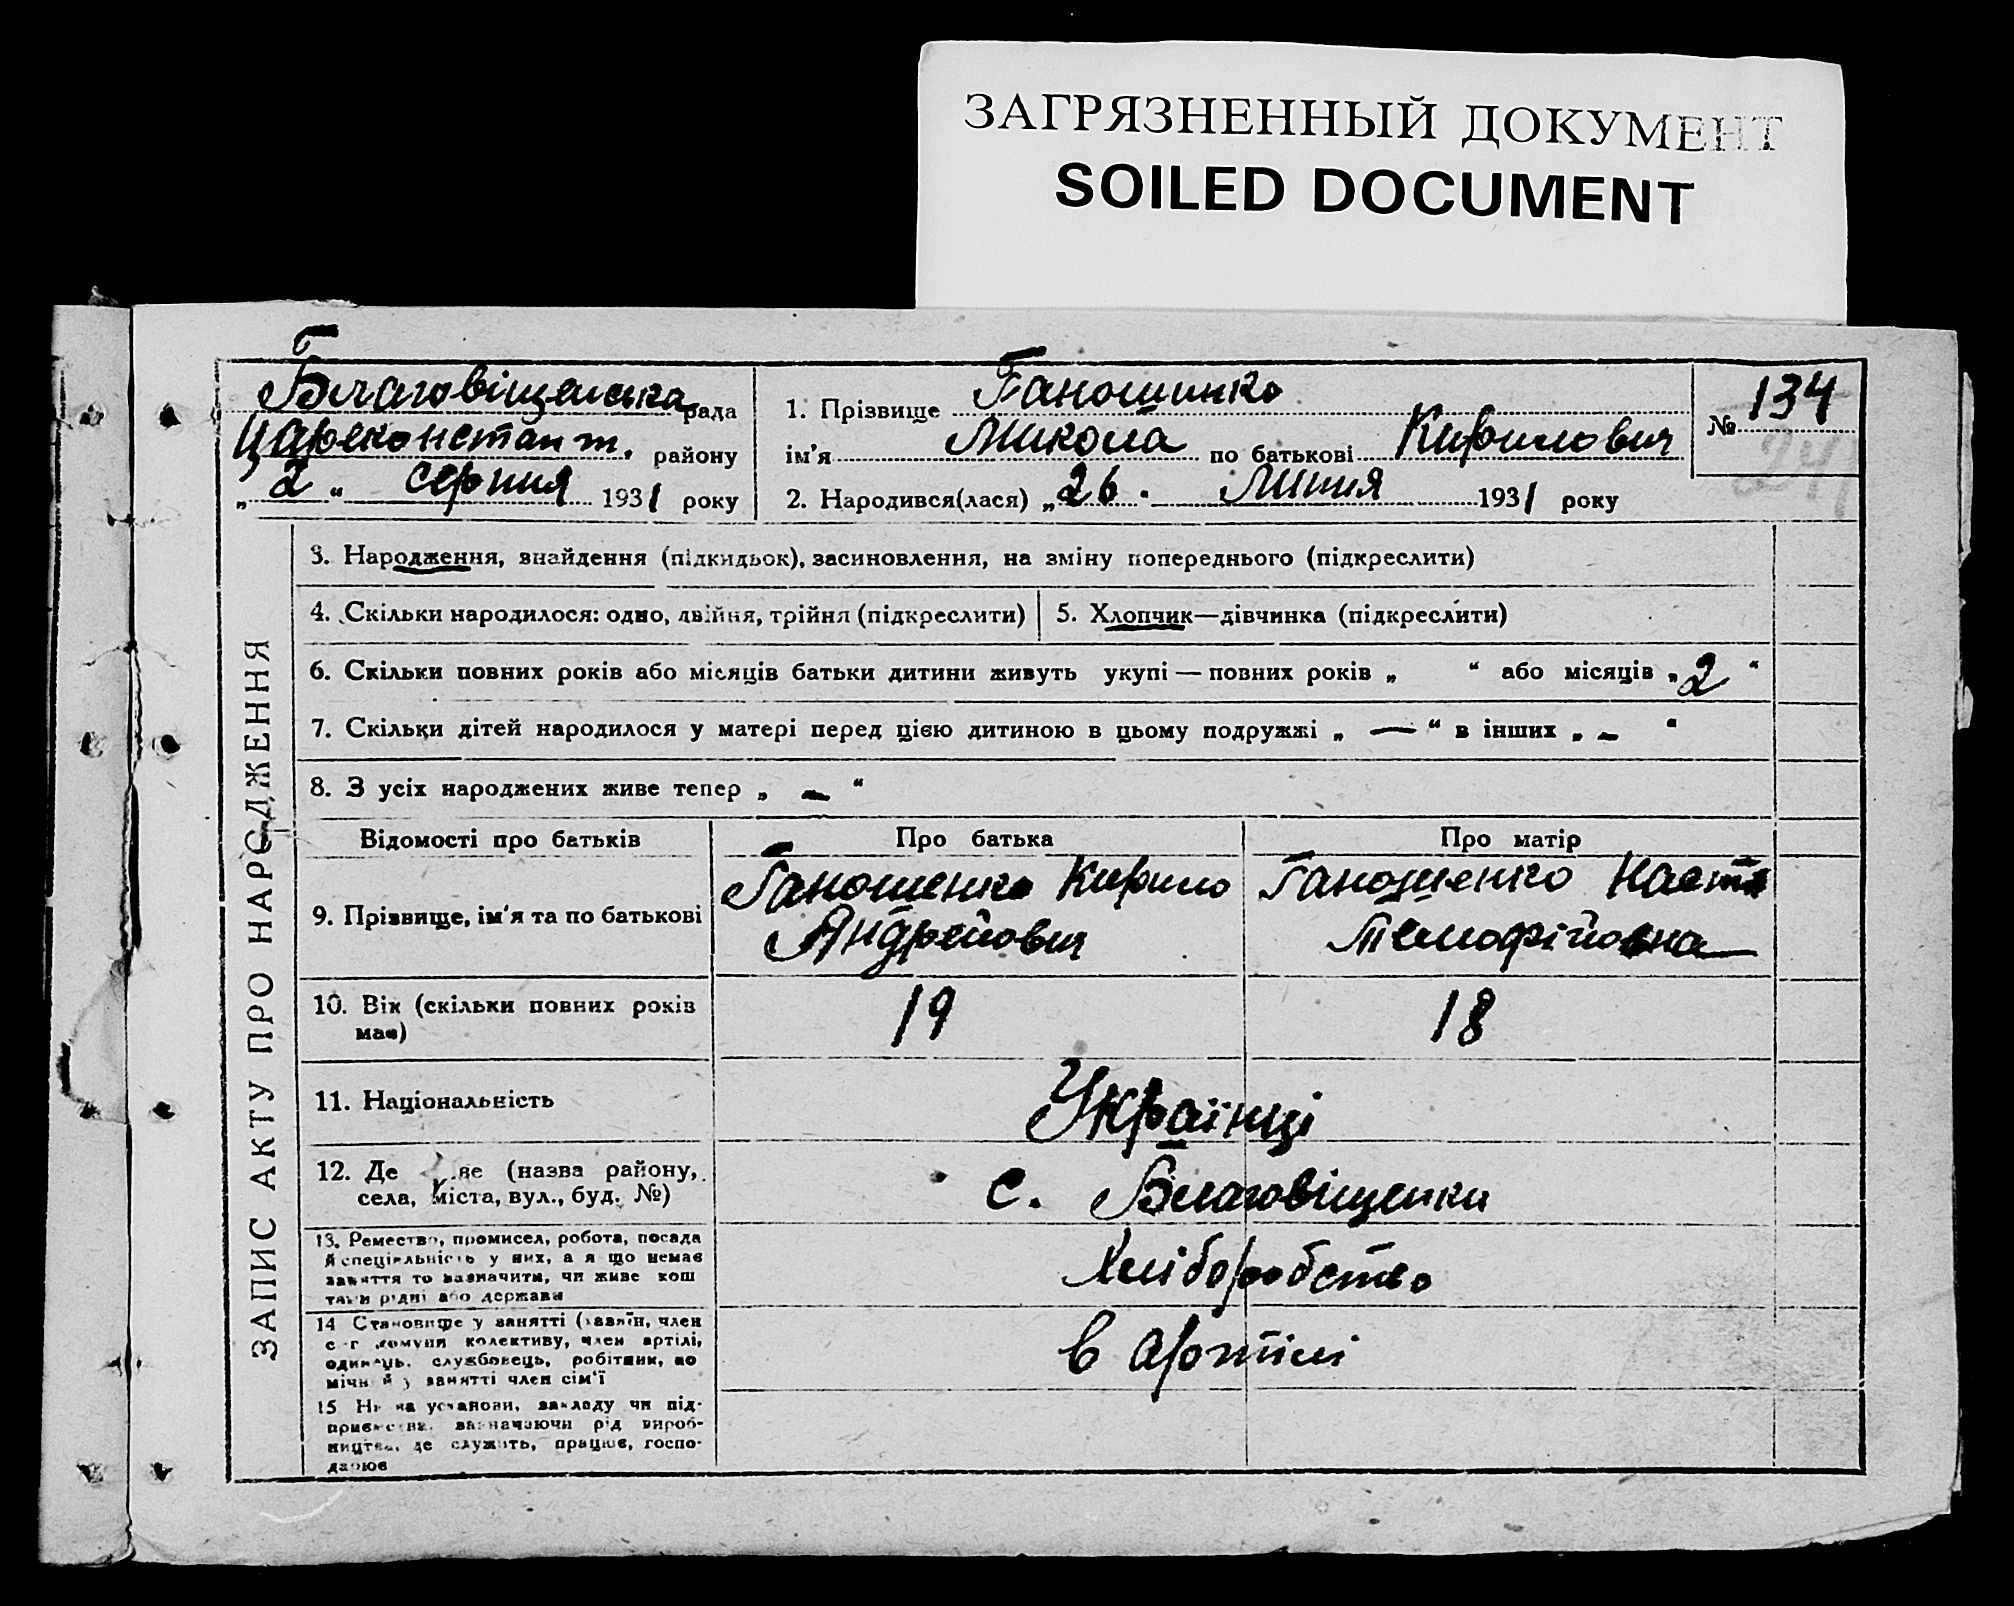 ЗАГРЯЗНЕННЫЙ ДОКУМЕНТ
SOILED DOCUMENT
Благовіщенська рада
Цареконстант. району
„ 2 “ серпня 1931 року
1. Прізвище Ганошинко
ім'я Микола по батькові Кирилович
2. Народився(лася) „ 26. Липня 1931 року
№ 134
ЗАПИС АКТУ ПРО НАРОДЖЕННЯ
3. Народження, знайдення (підкидьок), засиновлення, на зміну попереднього (підкреслити)
4. Скільки народилося: одно, двійня, трійня (підкреслити) 5. Хлопчик—дівчинка (підкреслити)
6. Скільки повних років або місяців батьки дитини живуть укупі — повних років „ “ або місяців „ 2 “
7. Скільки дітей народилося у матері перед цією дитиною в цьому подружжі „ — “ в інших „ – “
8. З усіх народжених живе тепер „ – “
Відомості про батьків Про батька Про матір
9. Прізвище, ім'я та по батькові
Ганошенко Кирило
Андрейович
Ганошенко Настя
10. Вік (скільки повних років
має)
19 18
11. Національність
Українці
12. Де (назва району,
села, міста, вул., буд. №)
с. Благовіщенки
13. Ремество, промисел, робота, посада
й спеціяльність у них, а я що немає
заняття то зазначити, чи живе кош
тами рідні або держави
Хліборобство
14 Становище у занятті (хазяїн, член
комуни колективу, член артілі,
одинець, службовець, робітник, по
мічн й у занятті член сім'ї
в артілі
15 Назва установи, закладу чи під-
приємства, зазначаючи рід вироб-
ництва, де служить, працює, госпо-
дарює